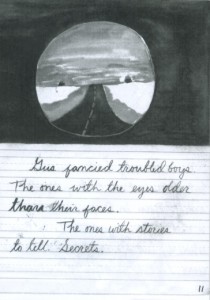 Gus fancied troubled boys
The ones with the eyes older
than their faces.
The ones with stories
to tell. Secrets.
11